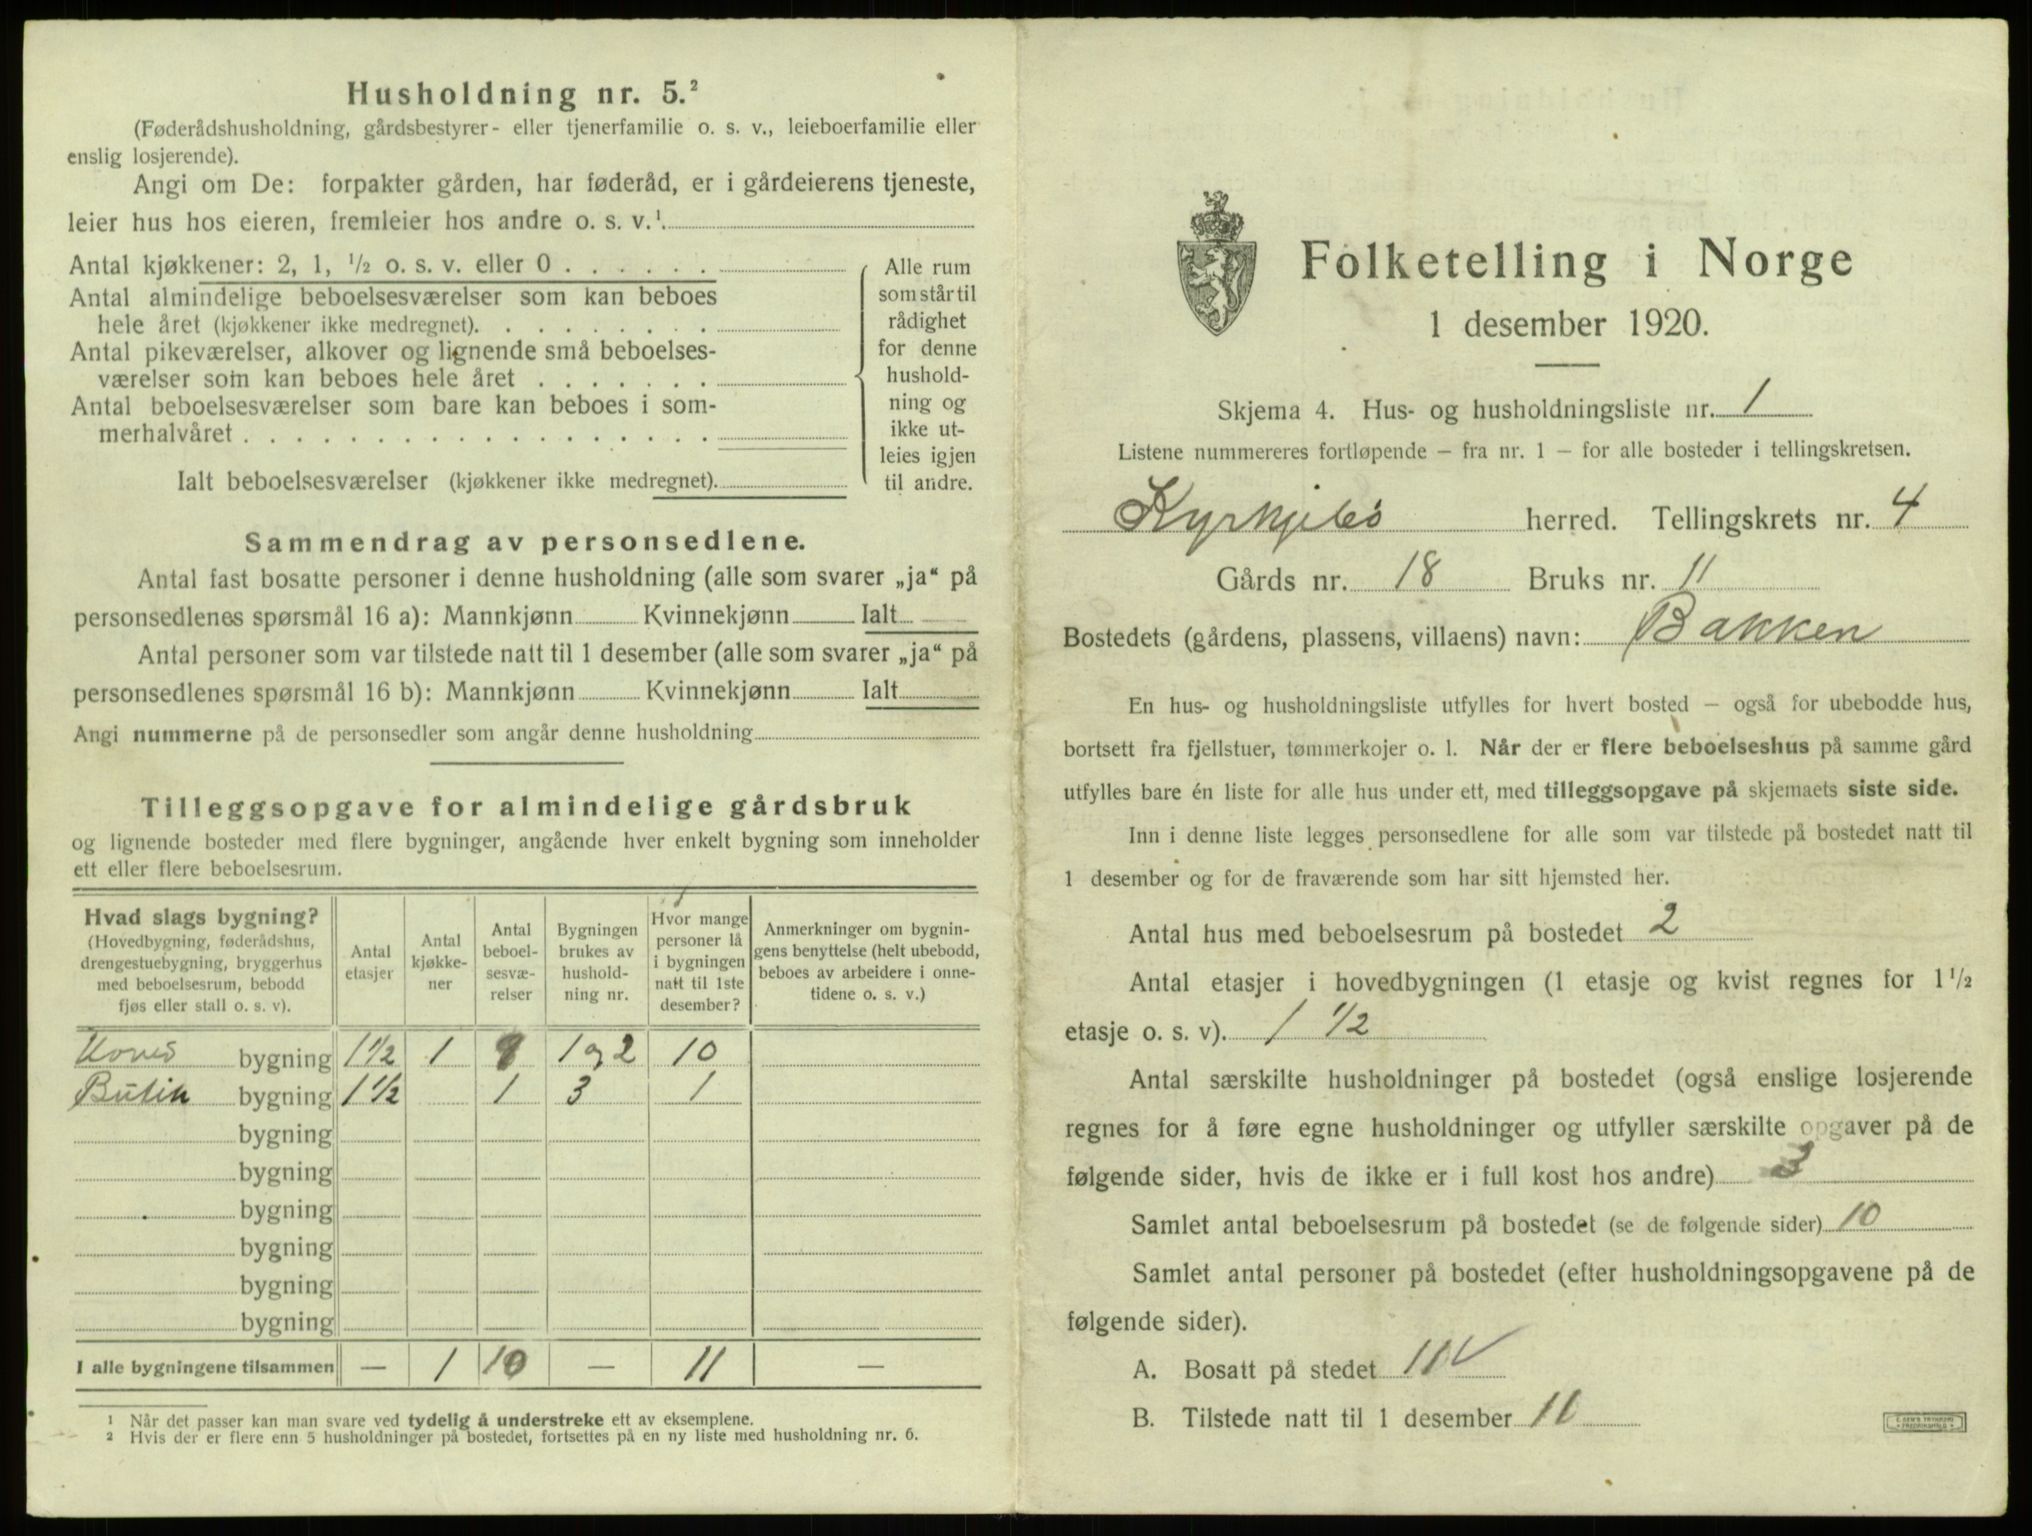 Husholdning nr. 5.²
(Føderådshusholdning, gårdsbestyrer- eller tjenerfamilie o. s. v., leieboerfamilie eller
enslig losjerende).
Angi om De: forpakter gården, har føderåd, er i gårdeierens tjeneste,
leier hus hos eieren, fremleier hos andre o. s. v.¹
Antal kjøkkener: 2, 1, ¹/₂ o. s. v. eller 0 . . . . . .
Antal almindelige beboelsesværelser som kan beboes
hele året (kjøkkener ikke medregnet). . . . . . . . .
Antal pikeværelser, alkover og lignende små beboelses-
værelser som kan beboes hele året . . . . . . .
Antal beboelsesværelser som bare kan beboes i som-
merhalvåret . . . . . . . . . . . . . . . . . .
Ialt beboelsesværelser (kjøkkener ikke medregnet).
Alle rum
som står til
rådighet
for denne
hushold-
ning og
ikke ut-
leies igjen
til andre.
Sammendrag av personsedlene.
Antal fast bosatte personer i denne husholdning (alle som svarer „ja“ på
personsedlenes spørsmål 16 a): Mannkjønn Kvinnekjønn Ialt
Antal personer som var tilstede natt til 1 desember (alle som svarer „ja“ på
personsedlenes spørsmål 16 b): Mannkjønn Kvinnekjønn Ialt
Angi nummerne på de personsedler som angår denne husholdning
Tilleggsopgave for almindelige gårdsbruk
og lignende bosteder med flere bygninger, angående hver enkelt bygning som inneholder
ett eller flere beboelsesrum.
Hvad slags bygning?
(Hovedbygning, føderådshus,
drengestuebygning, bryggerhus
med beboelsesrum, bebodd
fjøs eller stall o. s. v).
Antal
etasjer
Antal
kjøkke-
ner
Antal
beboel-
sesvæ-
relser
Bygningen
brukes av
hushold-
ning nr.
Hvor mange
personer lå
i bygningen
natt til 1ste
desember?
Anmerkninger om bygnin-
gens benyttelse (helt ubebodd,
beboes av arbeidere i onne-
tidene o. s. v.)
Hoved bygning 1 ½ 1 9 1 og 2 10
bygning 1 ½ 1 3 1
bygning
bygning
bygning
bygning
bygning
bygning
I alle bygningene tilsammen — 1 10 — 11 —
¹ Når det passer kan man svare ved tydelig å understreke ett av eksemplene.
² Hvis der er flere enn 5 husholdninger på bostedet, fortsettes på en ny liste med husholdning nr. 6.
Folketelling i Norge
1 desember 1920.
Skjema 4. Hus- og husholdningsliste nr. 1
Listene nummereres fortløpende – fra nr. 1 – for alle bosteder i tellingskretsen.
Kyrkjebö herred. Tellingskrets nr. 4
Gårds nr. 18 Bruks nr. 11
Bostedets (gårdens, plassens, villaens) navn: Bakken
En hus- og husholdningsliste utfylles for hvert bosted – også for ubebodde hus,
bortsett fra fjellstuer, tømmerkojer o. l. Når der er flere beboelseshus på samme gård
utfylles bare én liste for alle hus under ett, med tilleggsopgave på skjemaets siste side.
Inn i denne liste legges personsedlene for alle som var tilstede på bostedet natt til
1 desember og for de fraværende som har sitt hjemsted her.
Antal hus med beboelsesrum på bostedet 2
Antal etasjer i hovedbygningen (1 etasje og kvist regnes for 1 ¹/₂
etasje o. s. v). 1 ½
Antal særskilte husholdninger på bostedet (også enslige losjerende
regnes for å føre egne husholdninger og utfyller særskilte opgaver på de
følgende sider, hvis de ikke er i full kost hos andre) 3
Samlet antal beboelsesrum på bostedet (se de følgende sider) 10
Samlet antal personer på bostedet (efter husholdningsopgavene på de
følgende sider).
A. Bosatt på stedet 11 ✓
B. Tilstede natt til 1 desember 11